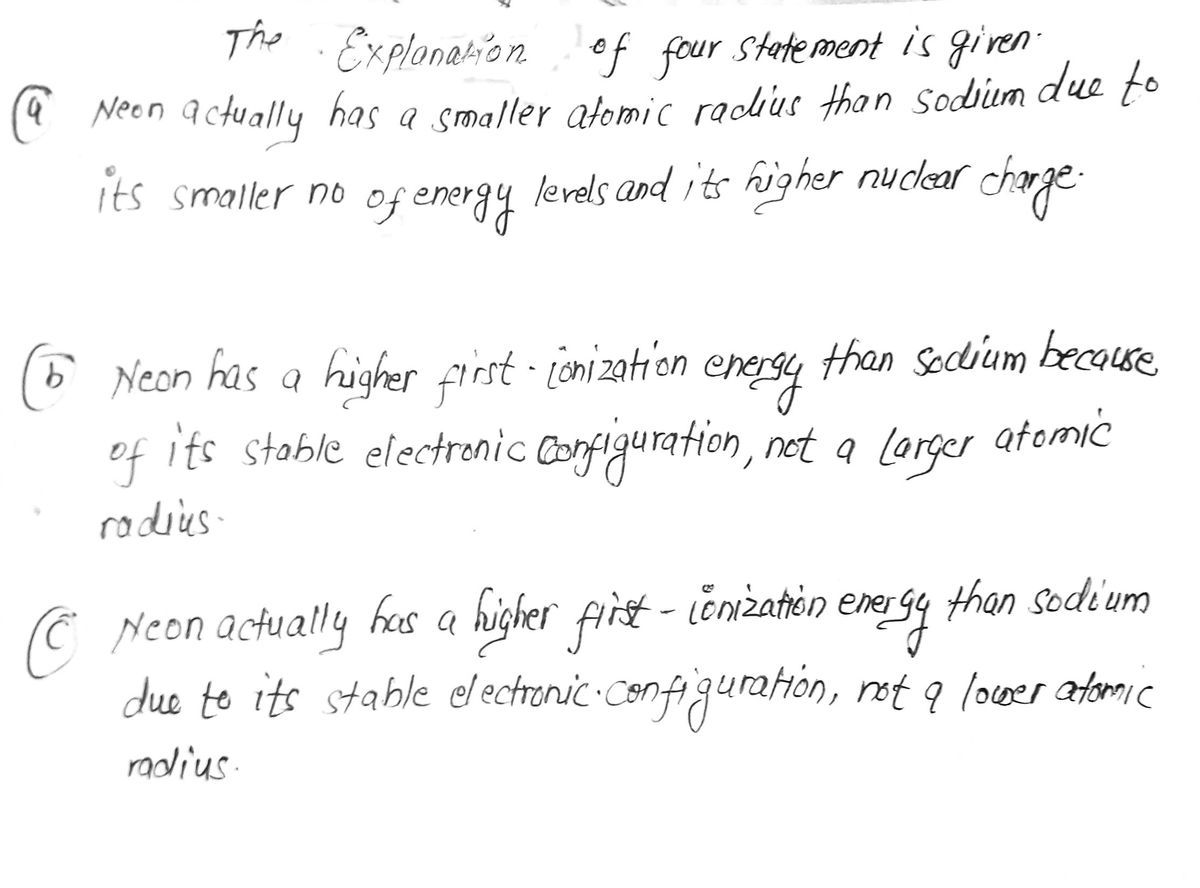 The Explanation of four statement is given.
(a) Neon actually has a smaller atomic radius than sodium due to
its smaller no of energy levels and its higher nuclear charge.
(b) Neon has a higher first-ionization energy than Sodium because
of its stable electronic configuration, not a larger atomic
radius.
(c) Neon actually has a higher first-ionization energy than sodium
due to its stable electronic configuration, not a lower atomic
radius.